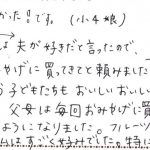 かった』です。 (小4 娘)
は夫が好きだと言ったので、
みやげに買ってきてと頼みました
子どもたちも おいしいおいしい
父母は毎回おみやげに買
ようになりました。フルーツ
ムはすごく好みでした。特に